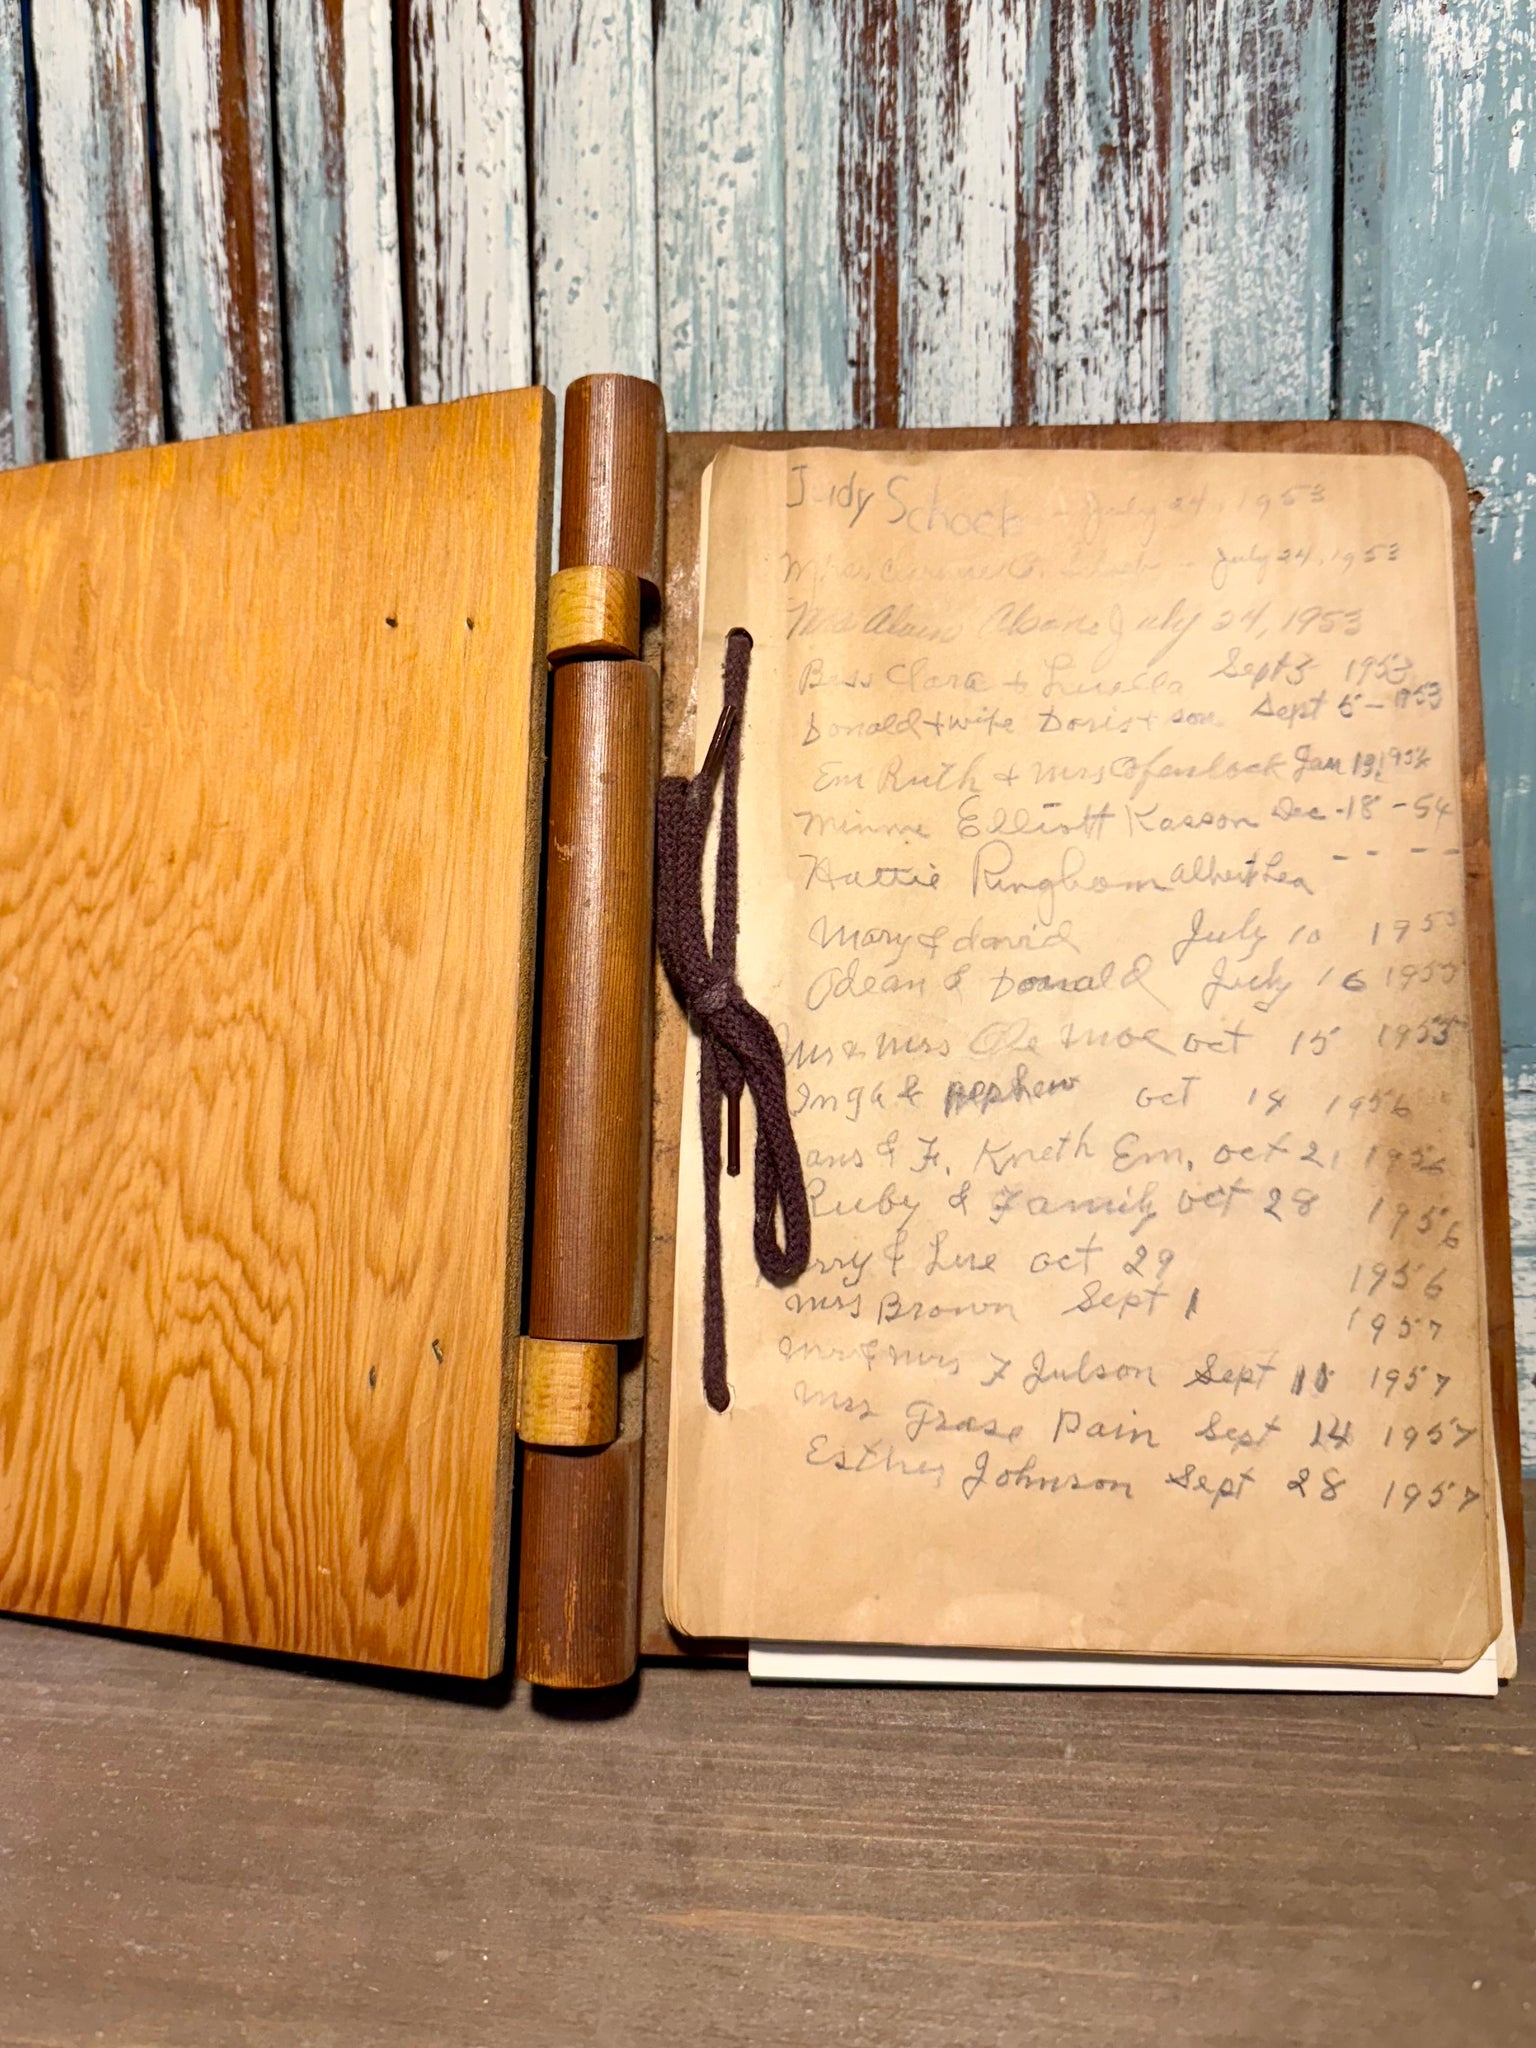 Judy Schock - July 24, 1953
July 24, 1953
Mrs July 24, 1953
Bess Clara + Luella Sept 3 1953
Donald + wife Doris + son Sept 5 - 1953
Em Ruth + Mrs Jan 19, 195
Minnie Elliott Kasson Dec - 18 - 54
Hattie Ringhom Albert Lea - - - -
Mary & david July 10 1955
Odean & Donald July 16 1955
Mrs Ole Moe oct 15 1955
Inga & nephew oct 14 1956
ans & F. Kneth Em. oct 21 1956
Ruby & Family oct 28 1956
rry & Lue oct 29 1956
Mrs Brown Sept 1 1957
Mr & Mrs F Julson Sept 11 1957
Mrs Grase Pain Sept 14 1957
Esther Johnson Sept 28 1957